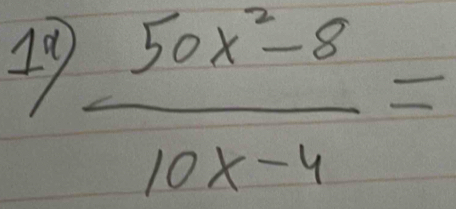 1a) 50x² - 8
10x - 4 =